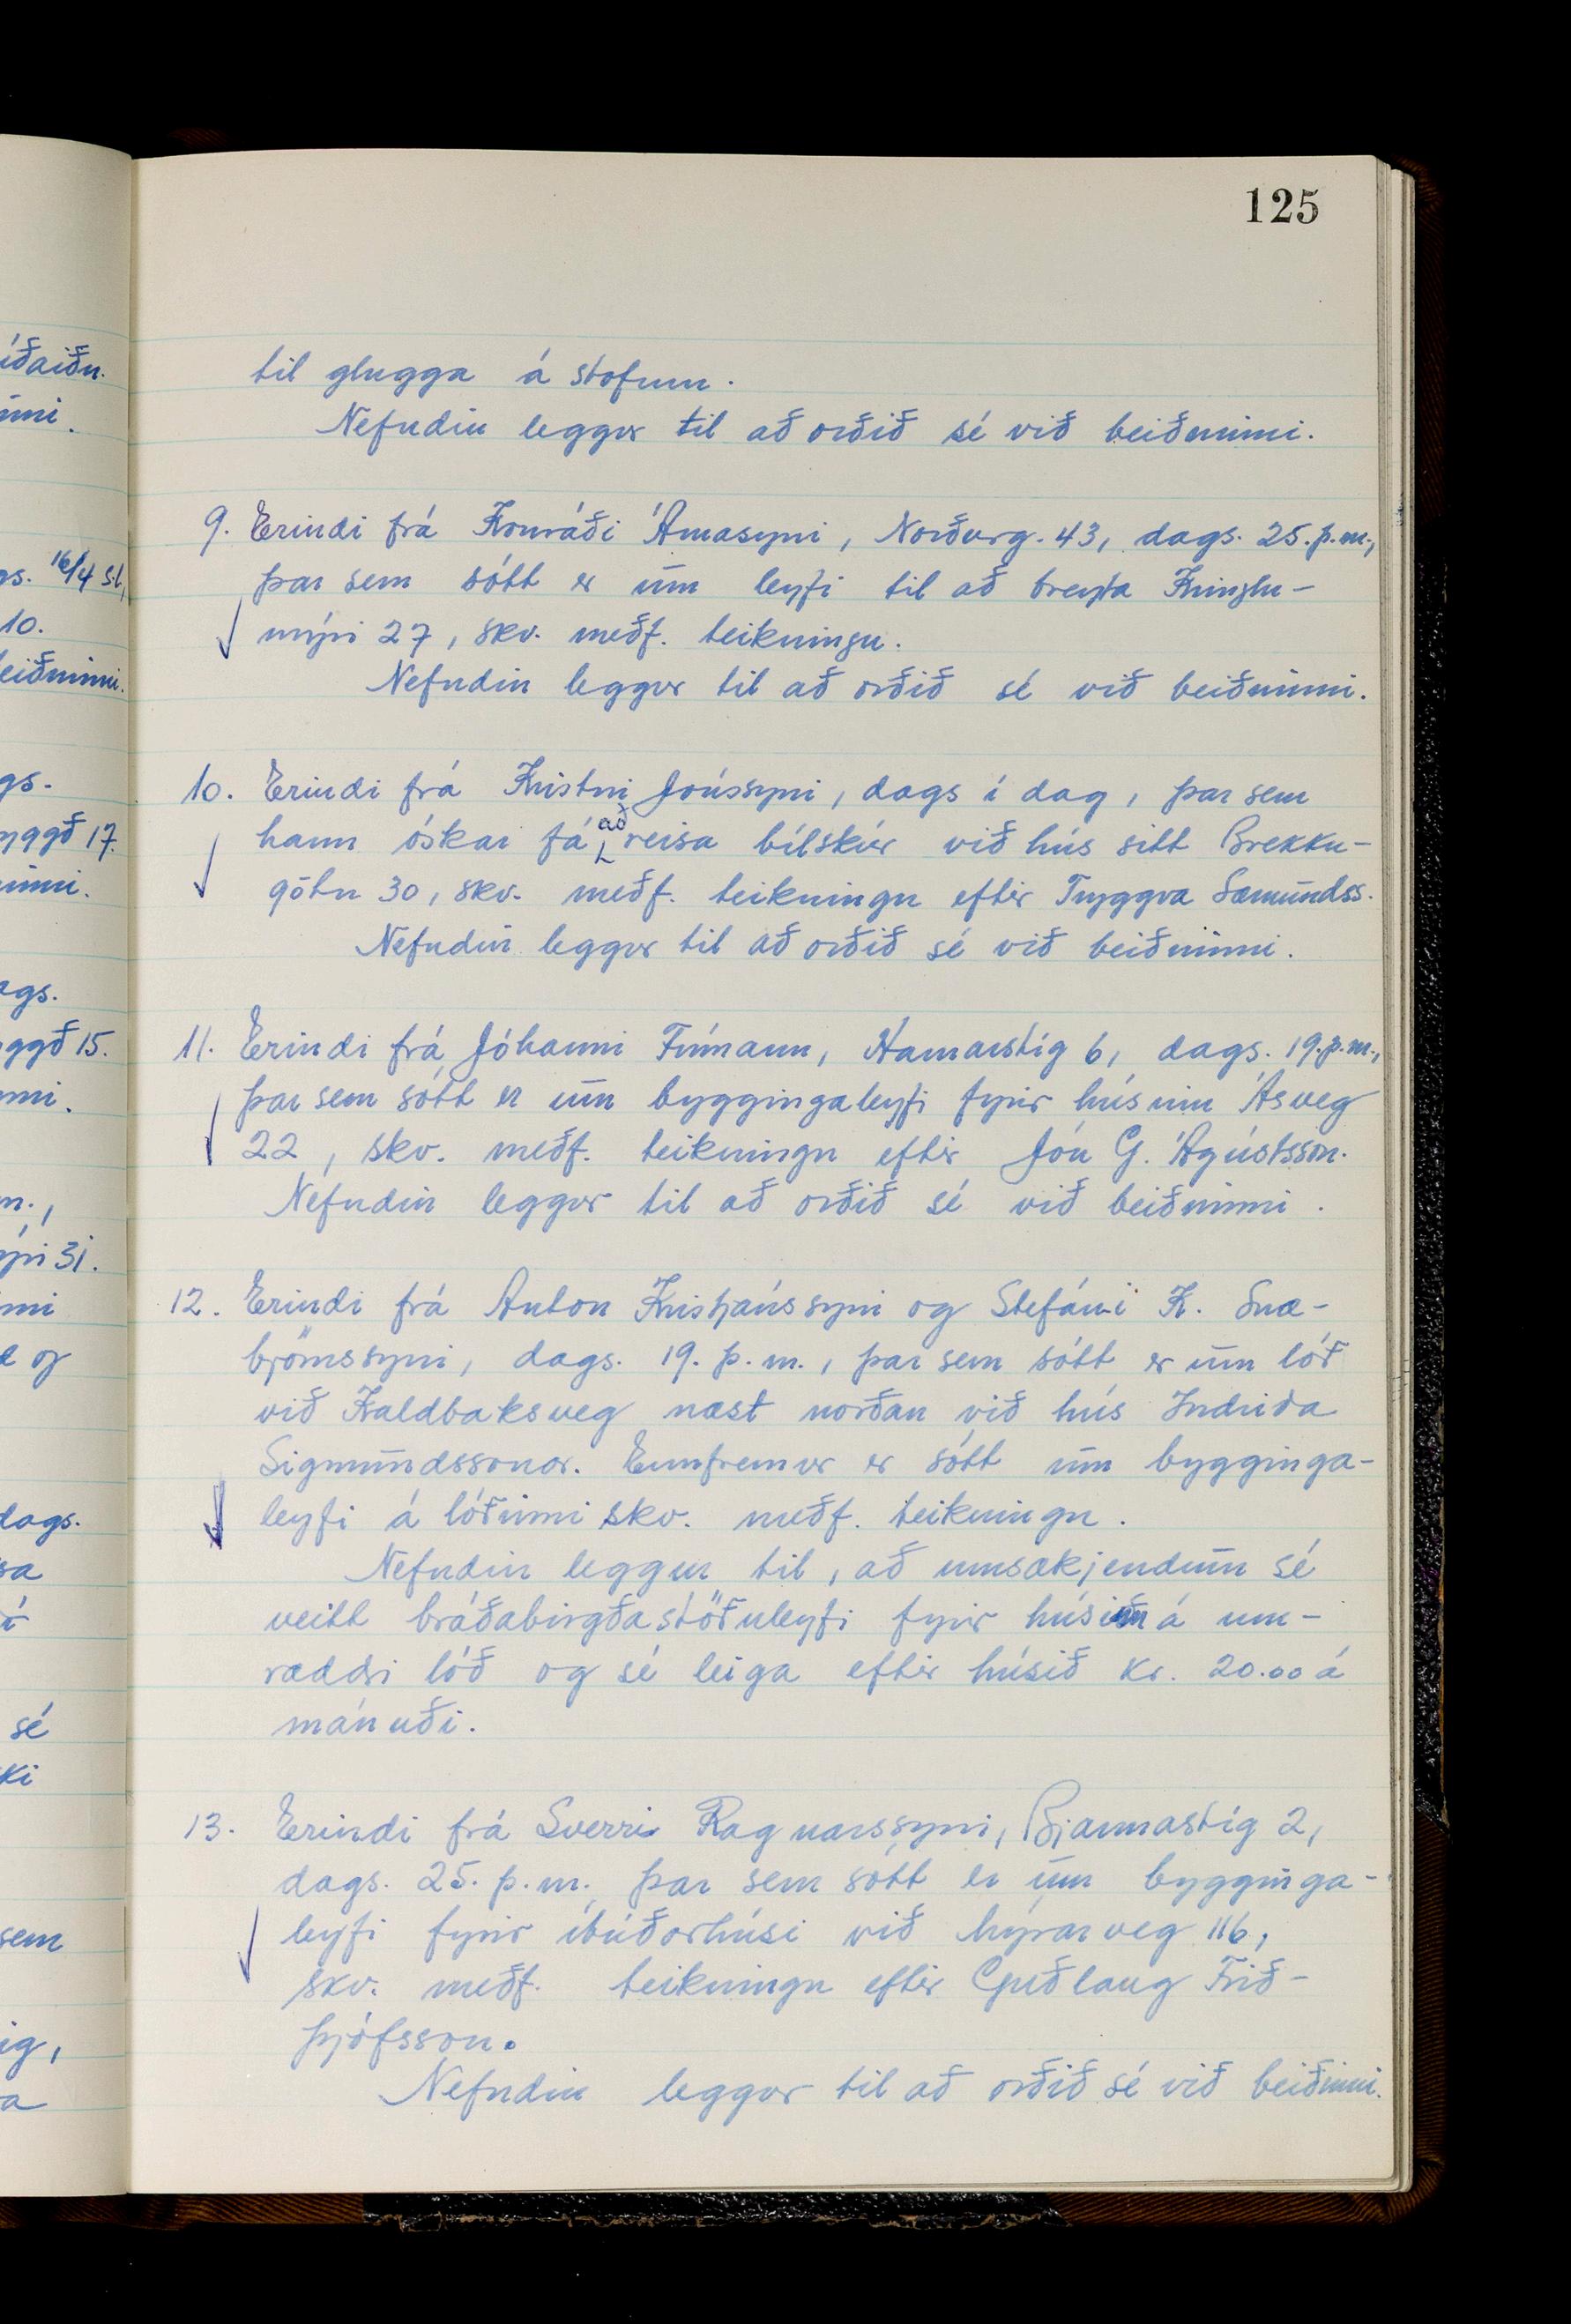 125
til glugga á stofum.
Nefndin leggur til að orðið sé við beiðninni.
9. Erindi frá Konráði Árnasyni, Norðurg. 43, dags. 25. þ.m.,
þar sem sótt er um leyfi til að breyta Kringlu-
mýri 27, skv. meðf. teikningu.
Nefndin leggur til að orðið sé við beiðninni.
10. Erindi frá Kristni Jónssyni, dags í dag, þar sem
hann óskar fá að reisa bílskúr við hús sitt Brekku-
götu 30, skv. meðf. teikningu eftir Tryggva Sæmundss.
Nefndin leggur til að orðið sé við beiðninni.
11. Erindi frá Jóhanni Frímann, Hamarstíg 6, dags. 19. þ.m.,
þar sem sótt er um byggingaleyfi fyrir húsinu Ásveg
22, skv. meðf. teikningu eftir Jón G. Ágústsson.
Nefndin leggur til að orðið sé við beiðninni.
12. Erindi frá Anton Kristjánssyni og Stefáni K. Snæ-
björnssyni, dags. 19. þ.m., þar sem sótt er um lóð
við Kaldbaksveg næst norðan við hús Indriða
Sigmundssonar. Ennfremur er sótt um bygginga-
leyfi á lóðinni skv. meðf. teikningu.
Nefndin leggur til, að umsækjendum sé
veitt bráðabirgðastöðuleyfi fyrir húsinu á um-
ræddri lóð og sé leiga eftir húsið kr. 20.00 á
mánuði.
13. Erindi frá Sverri Ragnarssyni, Bjarmastíg 2,
dags. 25. þ.m., þar sem sótt er um bygginga-
leyfi fyrir íbúðarhúsi við Mýrarveg 116,
skv. meðf. teikningu eftir Guðlaug Frið-
þjófsson.
Nefndin leggur til að orðið sé við beiðninni.